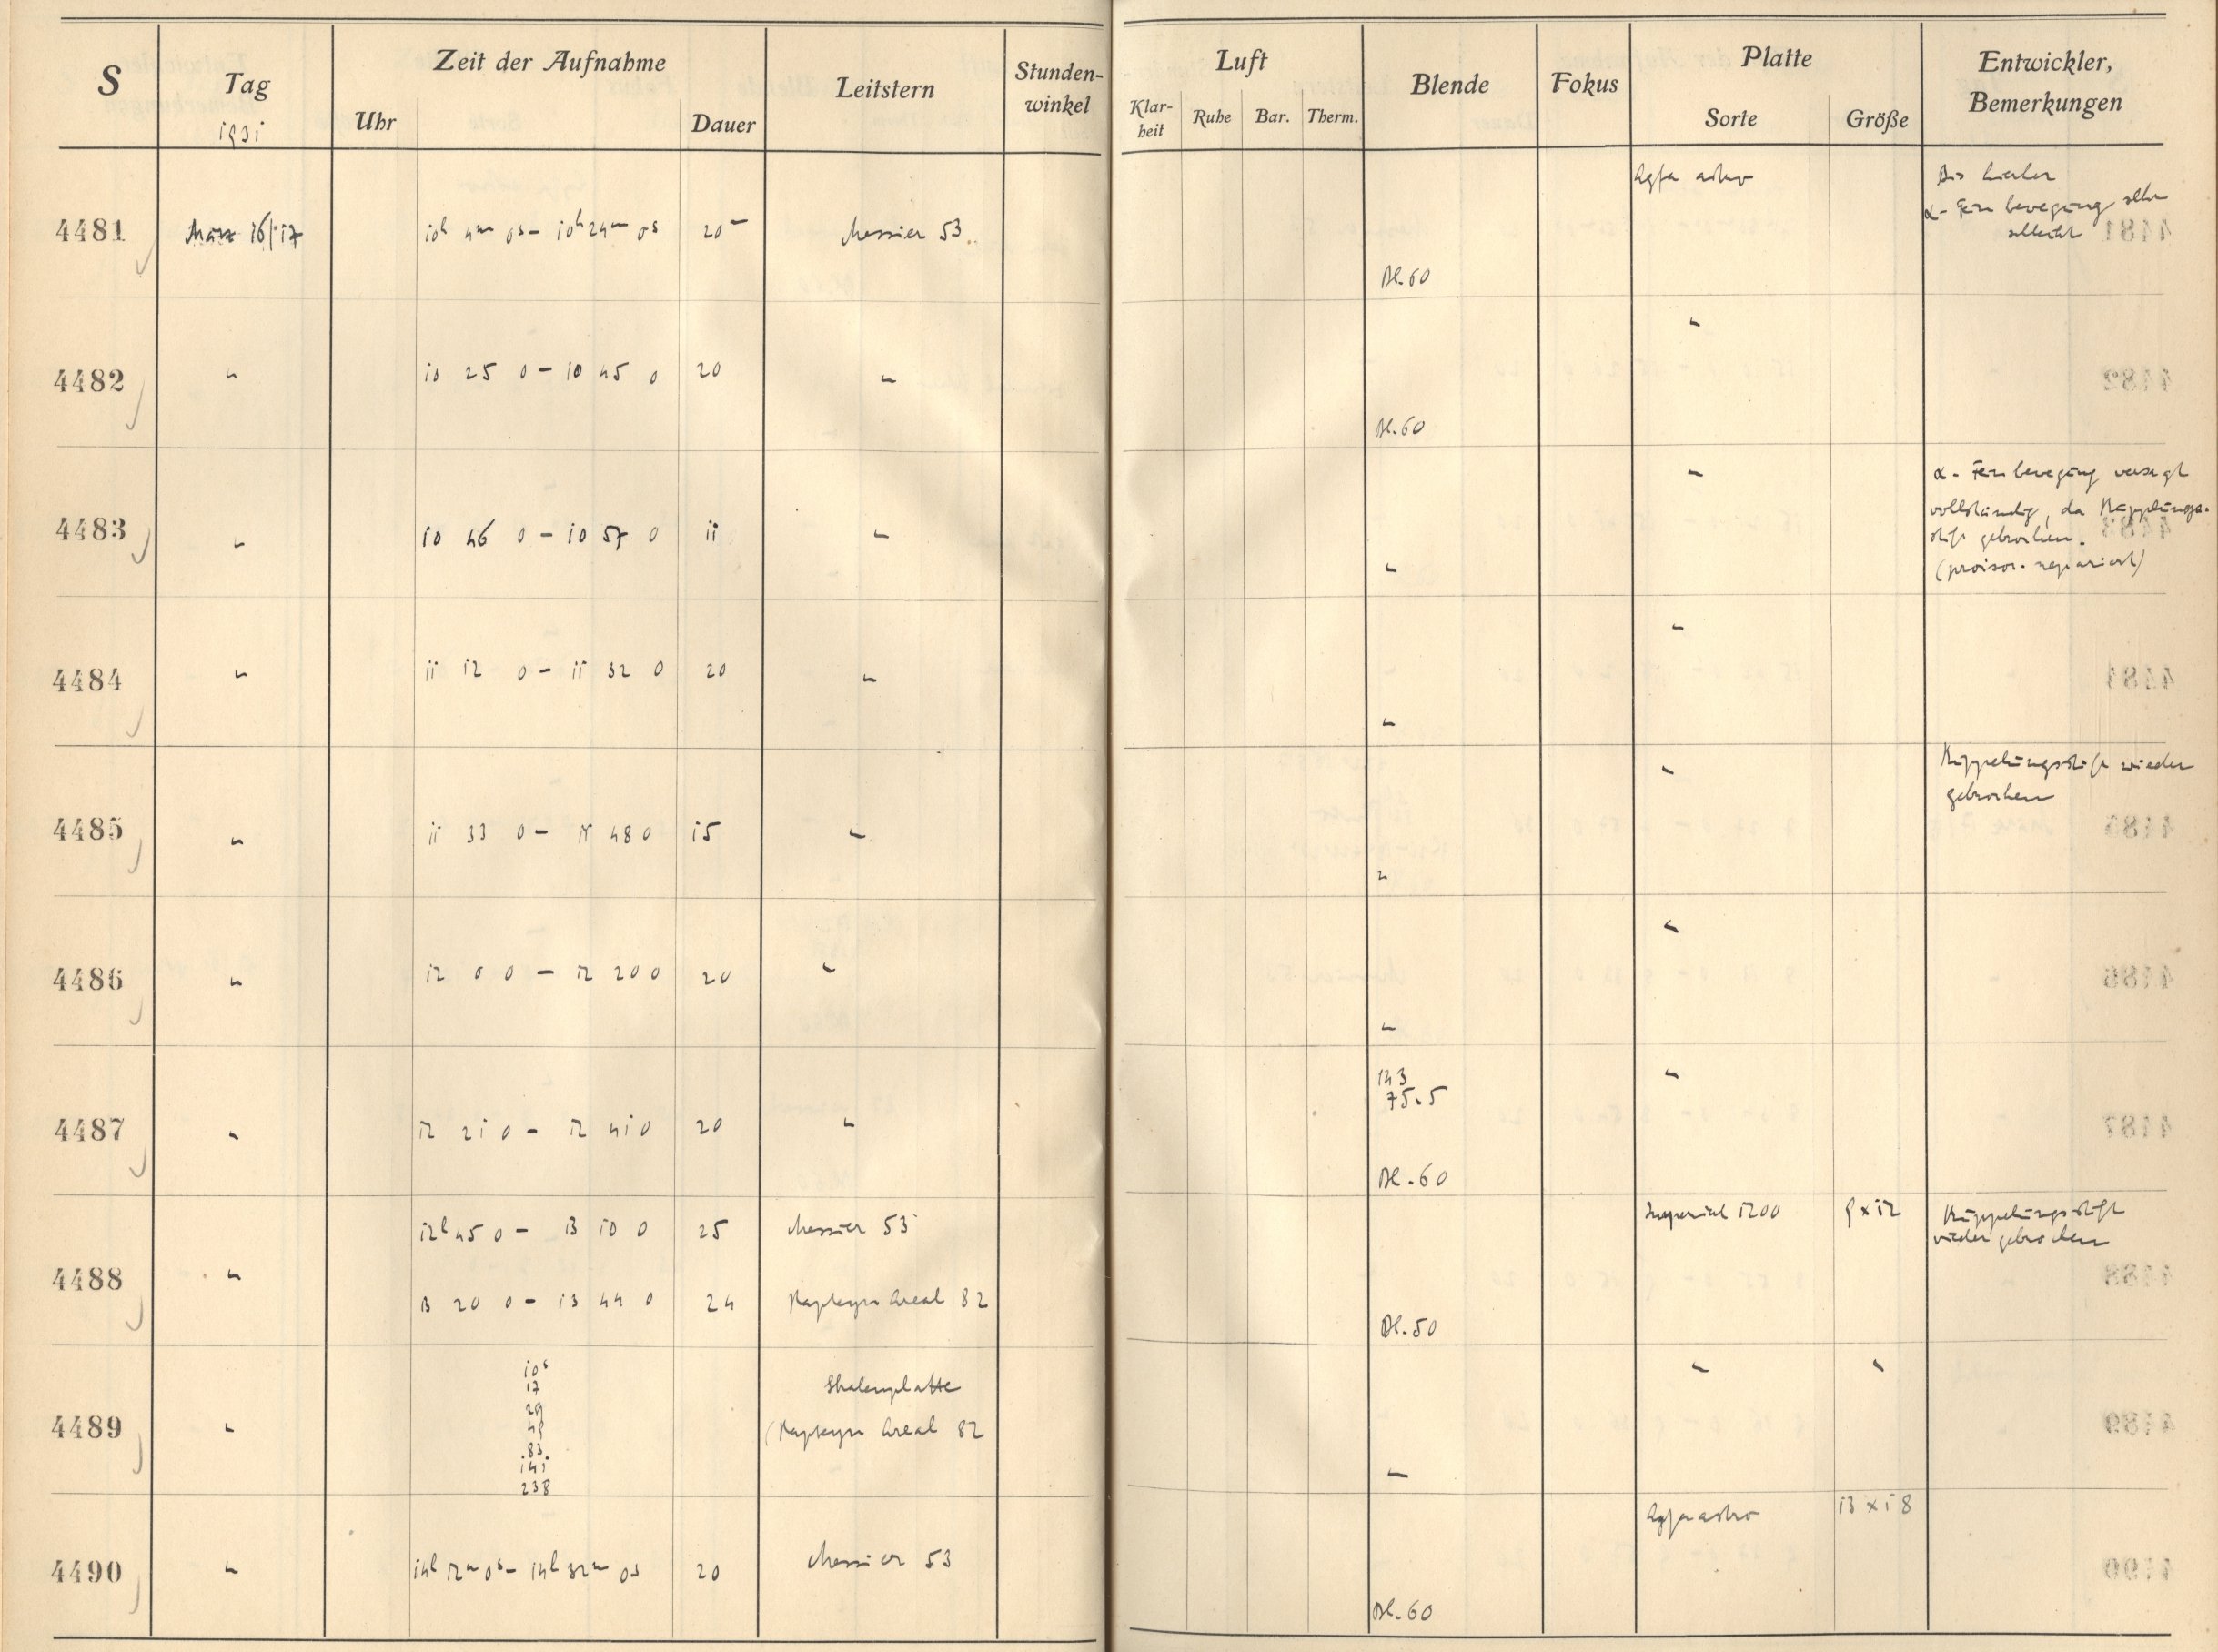 S Tag Zeit der Aufnahme Leitstern Stunden-winkel Luft Blende Fokus Platte Entwickler, Bemerkungen
1931 Uhr Dauer Klar-heit Ruhe Bar. Therm. Sorte Größe
Agfa astro Bis hierher
α-Feinbewegung sehr
4481 März 16/17 10h 4m 0s – 10h 24m 0s 20m Messier 53 schlecht
Bl. 60
"
4482 " 10 25 0 – 10 45 0 20 "
Bl. 60
" α-Feinbewegung versagt
vollständig, da Kupplungs-
4483 " 10 46 0 – 10 57 0 11 " stift gebrochen.
" (provisor. repariert)
"
4484 " 11 12 0 – 11 32 0 20 "
"
" Kuppelungsstift wieder
gebrochen
4485 " 11 33 0 – 11 48 0 15 "
"
"
4486 " 12 0 0 – 12 20 0 20 "
"
143 "
75.5
4487 " 12 21 0 – 12 41 0 20 "
Bl. 60
12h 45 0 – 13 10 0 25 Messier 53 Imperial 1200 9x12 Kuppelungsstift
wieder gebrochen
4488 "
13 20 0 – 13 44 0 24 Kapteyn Areal 82
Bl. 50
10s " "
17 Skalenplatte
29
4489 " 49 (Kapteyn Areal 82
83
141 "
238
Agfa astro 13 x 18
4490 " 14h 12m 0s – 14h 32m 0s 20 Messier 53
Bl. 60